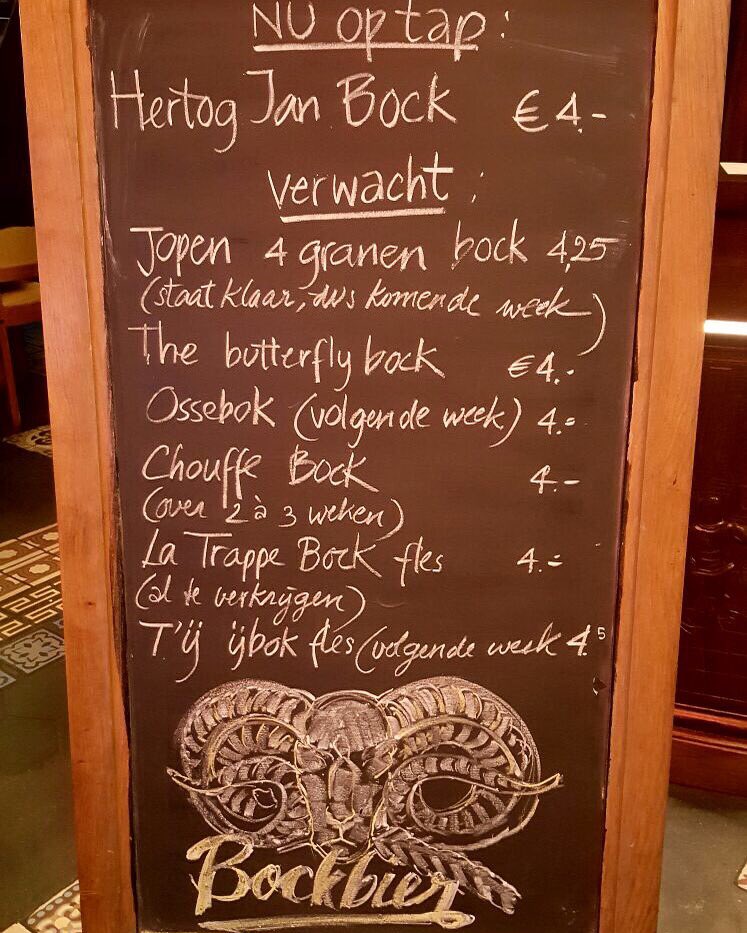 NU op tap:
Hertog Jan Bock €4.-
verwacht:
Jopen 4 granen bock 4,25
(staat klaar, dus komende week)
The butterfly bock €4.-
Ossebok (volgende week) 4.=
Chouffe Bock 4.-
(over 2 à 3 weken)
La Trappe Bock fles 4.=
(al te verkrijgen)
T'ij ijbok fles (volgende week 4.5
Bockbier